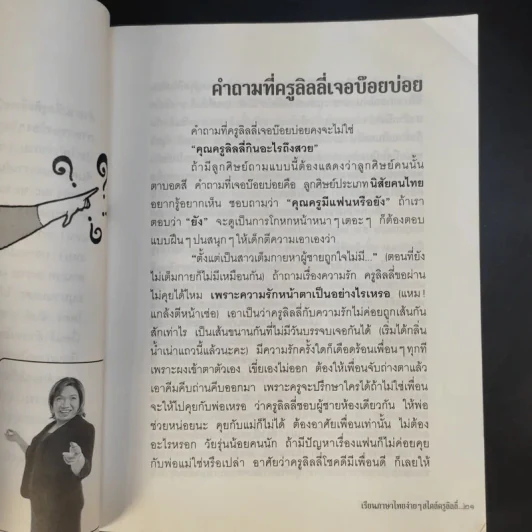 คำถามที่ครูลิลลี่เจอบ๊อยบ่อย
คำถามที่ครูลิลลี่เจอบ๊อยบ่อยคงจะไม่ใช่
“คุณครูลิลลี่กินอะไรถึงสวย”
ถ้ามีลูกศิษย์ถามแบบนี้ต้องแสดงว่าลูกศิษย์คนนั้น
ตาบอดสี คำถามที่เจอบ๊อยบ่อยคือ ลูกศิษย์ประเภท นิสัยคนไทย
อยากรู้อยากเห็น ชอบถามว่า “คุณครูมีแฟนหรือยัง” ถ้าเรา
ตอบว่า “ยัง” จะดูเป็นการโกหกหน้าหนา ๆ เตอะ ๆ ก็ต้องตอบ
แบบฝืน ๆ ปนสนุก ๆ ให้เด็กตีความเอาเองว่า
“ตั้งแต่เป็นสาวเต็มกายหาผู้ชายถูกใจไม่มี...” (ตอนที่ยัง
ไม่เต็มกายก็ไม่มีเหมือนกัน) ถ้าถามเรื่องความรัก ครูลิลลี่ขอผ่าน
ไม่คุยได้ไหม เพราะความรักหน้าตาเป็นอย่างไรเหรอ (แหม!
แกล้งตีหน้าเซ่อ) เอาเป็นว่าครูลิลลี่กับความรักไม่ค่อยถูกเส้นกัน
สักเท่าไร เป็นเส้นขนานกันที่ไม่มีวันบรรจบเจอกันได้ (เริ่มได้กลิ่น
น้ำเน่าแถวนี้แล้วนะคะ) มีความรักครั้งใดก็เดือดร้อนเพื่อน ๆ ทุกที
เพราะผงเข้าตาตัวเอง เขี่ยเองไม่ออก ต้องให้เพื่อนจับถ่างตาแล้ว
เอาคีมคีบถ่านคีบออกมา เพราะครูจะปรึกษาใครได้ถ้าไม่ใช่เพื่อน
จะให้ไปคุยกับพ่อเหรอ ว่าครูลิลลี่ชอบผู้ชายห้องเดียวกัน ให้พ่อ
ช่วยหน่อยนะ คุยกับแม่ก็ไม่ได้ ต้องอาศัยเพื่อนเท่านั้น ไม่ต้อง
อะไรหรอก วัยรุ่นน้อยคนนัก ถ้ามีปัญหาเรื่องแฟนก็ไม่ค่อยคุย
กับพ่อแม่ใช่หรือเปล่า อาศัยว่าครูลิลลี่โชคดีมีเพื่อนดี ก็เลยให้
เรียนภาษาไทยง่าย ๆ สไตล์ครูลิลลี่...๒๑